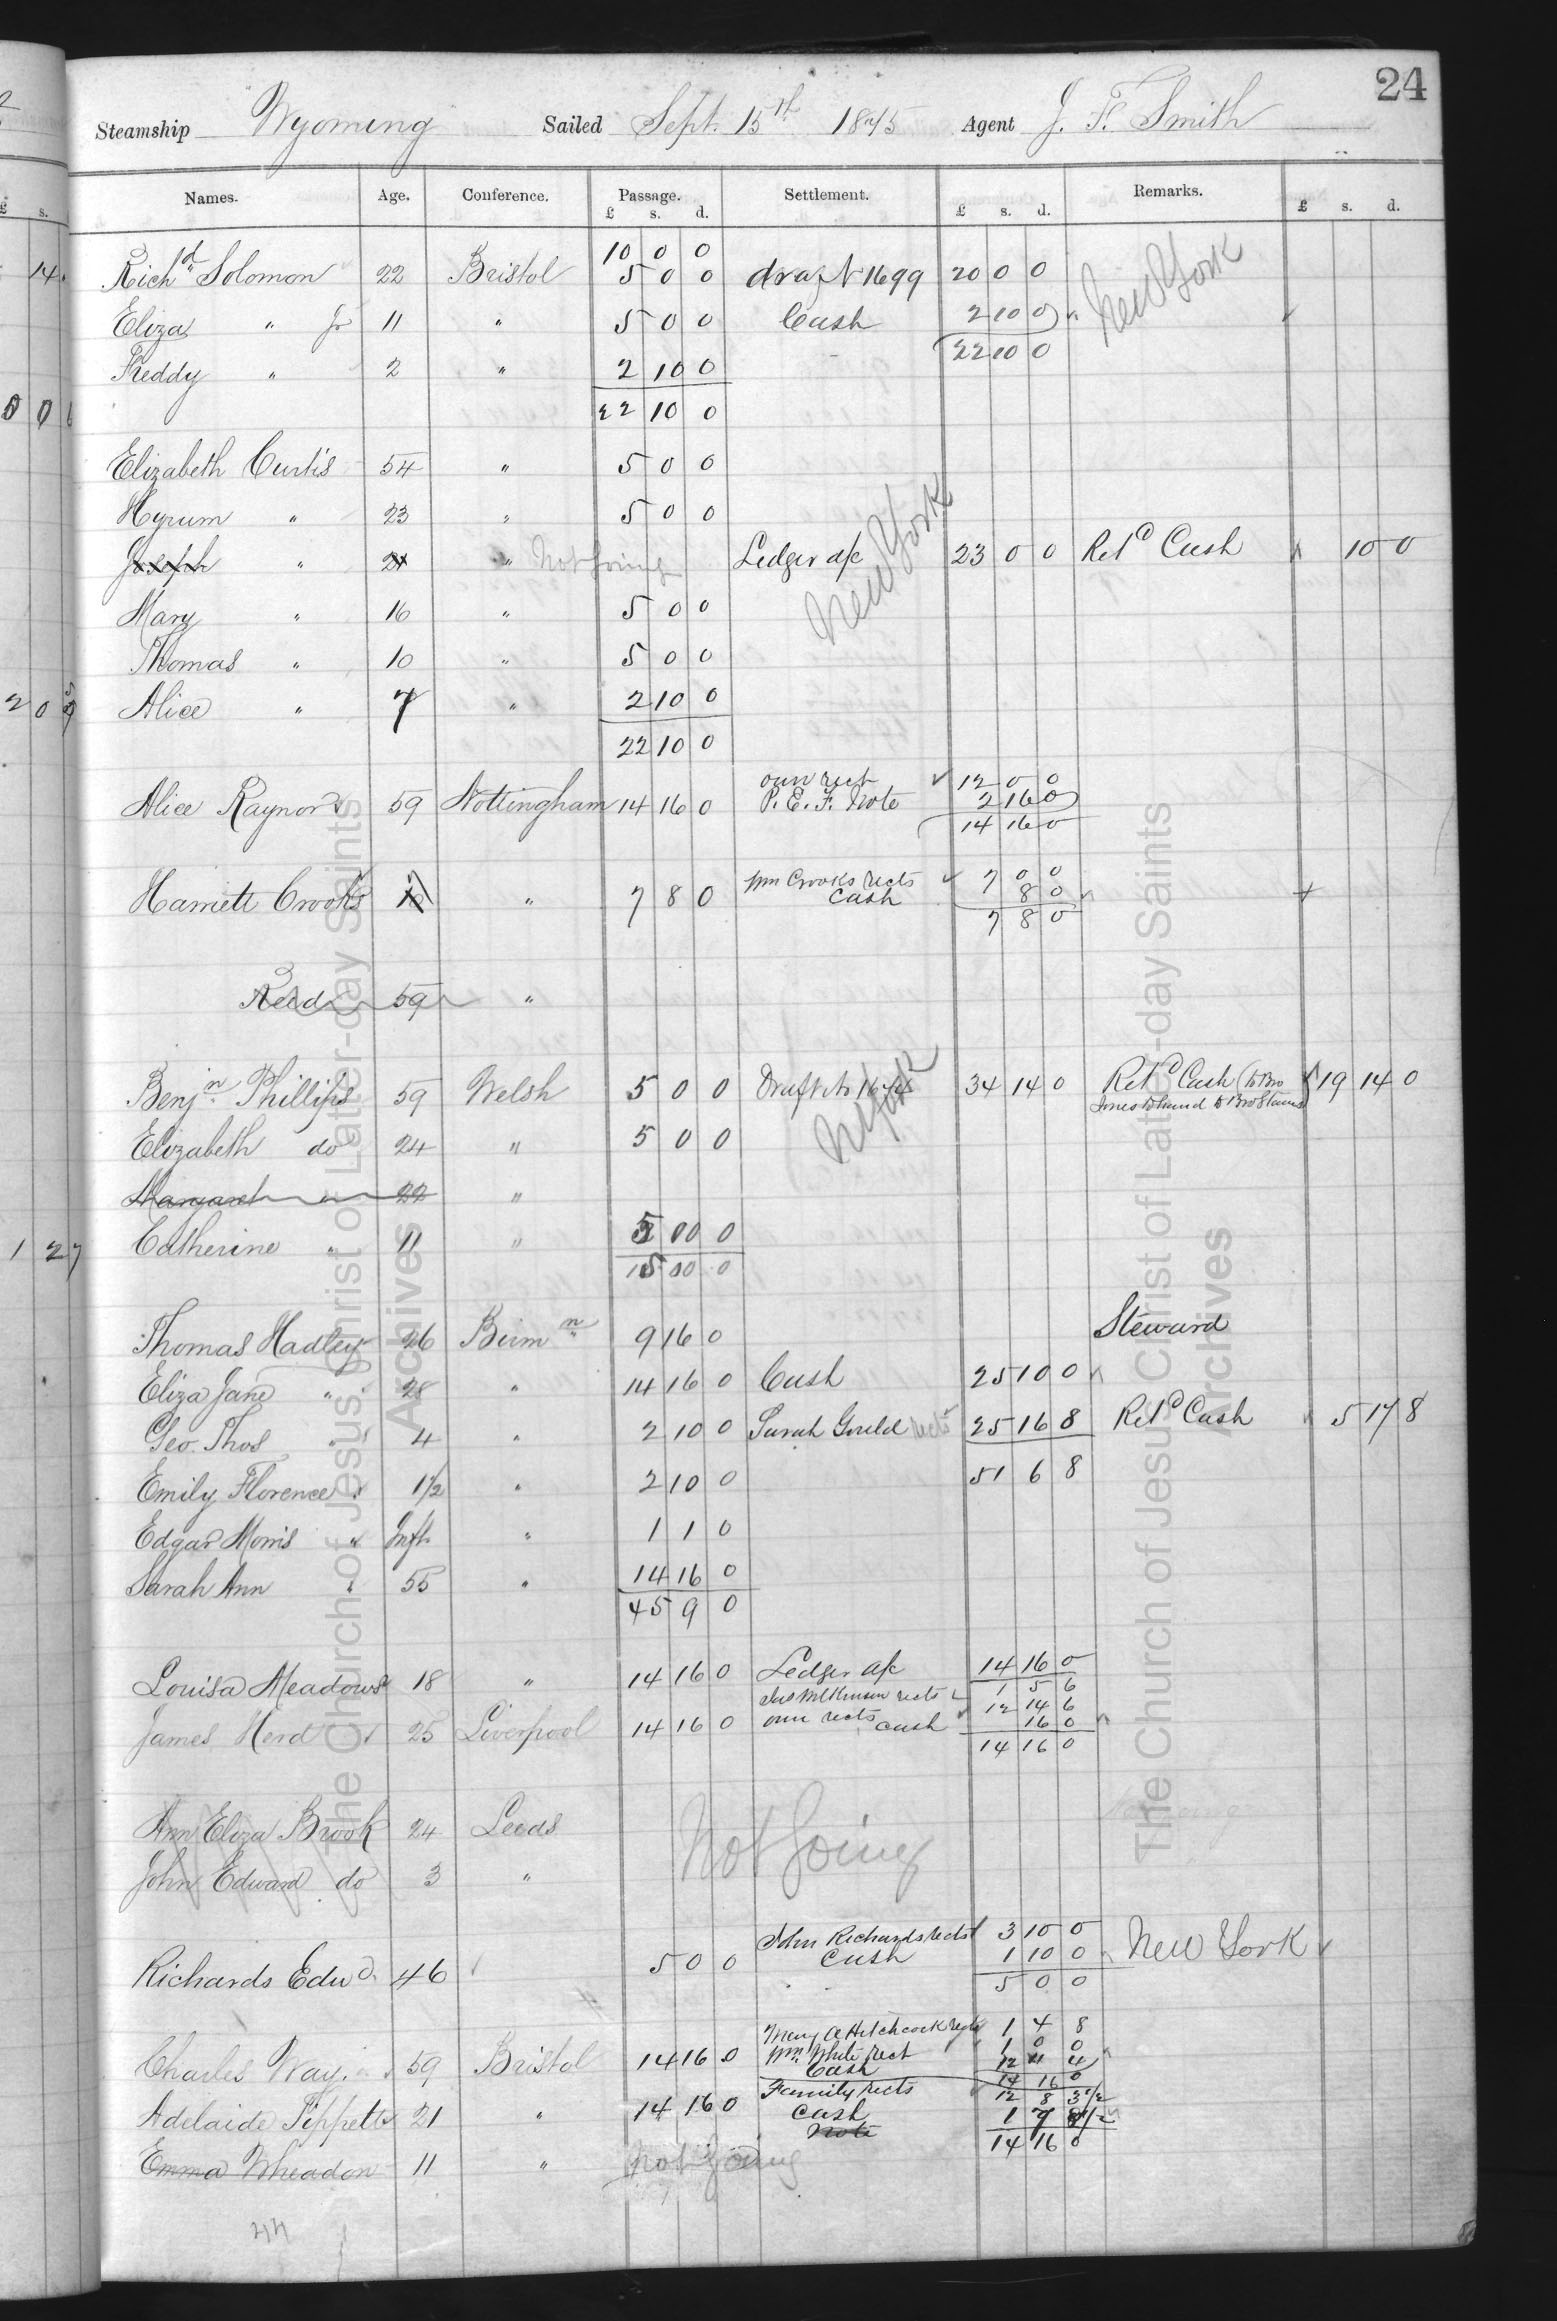 24
Steamship Wyoming Sailed Sept. 15th 1875 Agent J. F. Smith
Names. Age. Conference. Passage. Settlement. Remarks.
£ s. d. £ s. d. £ s. d.
10 0 0
Richd Solomon 22 Bristol 5 0 0 draft 1699 20 0 0 New York
Eliza " Jr 11 " 5 0 0 Cash 2 10 0
22 10 0
Freddy " 2 " 2 10 0
22 10 0
Elizabeth Curtis 54 " 5 0 0
Hyrum " 23 " 5 0 0 New York
Joseph " 21 " Not Going Ledger a/c 23 0 0 Retd Cash 10 0
Mary " 16 " 5 0 0
Thomas " 10 " 5 0 0
Alice " 7 " 2 10 0
22 10 0
own rect 12 0 0
Alice Raynor 59 Nottingham 14 16 0 P. E. F. Note 2 16 0
14 16 0
Wm Crooks rects 7 0 0
Harriett Crooks " 7 8 0 Cash 8 0
7 8 0
Reed 59 "
Benjn Phillips 59 Welsh 5 0 0 Draft No 1674 34 14 0 Retd Cash (to Bro 19 14 0
Jones to hand to Bro
N York
Elizabeth do 24 " 5 0 0
Margaret " 22 "
Catherine " 11 " 5 00 0
15 00 0
Thomas Hadley 26 Birmn 9 16 0 Steward
Eliza Jane " 28 " 14 16 0 Cash 25 10 0
Geo. Thos " 4 " 2 10 0 Sarah Gould rects 25 16 8 Retd Cash 5 17 8
Emily Florence " 1 1/2 " 2 10 0 51 6 8
Edgar Morris " Inft. " 1 1 0
Sarah Ann " 55 " 14 16 0
45 9 0
Louisa Meadows 18 " 14 16 0 Ledger a/c 14 16 0
Jas Wilkinson rects 1 5 6
James Herd 25 Liverpool 14 16 0 own rects 12 14 6
cash 16 0
14 16 0
Ann Eliza Brook 24 Leeds Not Going
John Edward do 3 "
John Richards rects 3 10 0
Richards Edwd. 46 5 0 0 Cash 1 10 0 New York
5 0 0
Mary A Hitchcock rects 1 4 8
Charles Way. 59 Bristol 14 16 0 Wm. White rect 1 0 0
Cash 12 11 4
14 16 0
Family rects 12 8 3 1/2
Adelaide Tippetts 21 " 14 16 0 Cash 1 7 8 1/2
Note 14 16 0
Emma Wheadon 11 " Not Going
44
The Church of Jesus Christ of Latter-day Saints
Archives
The Church of Jesus Christ of Latter-day Saints
Archives